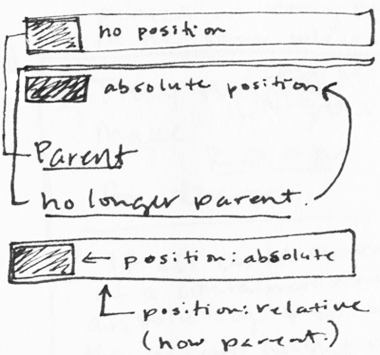 no position
absolute position
Parent
no longer parent.
← position: absolute
position: relative
(now parent.)